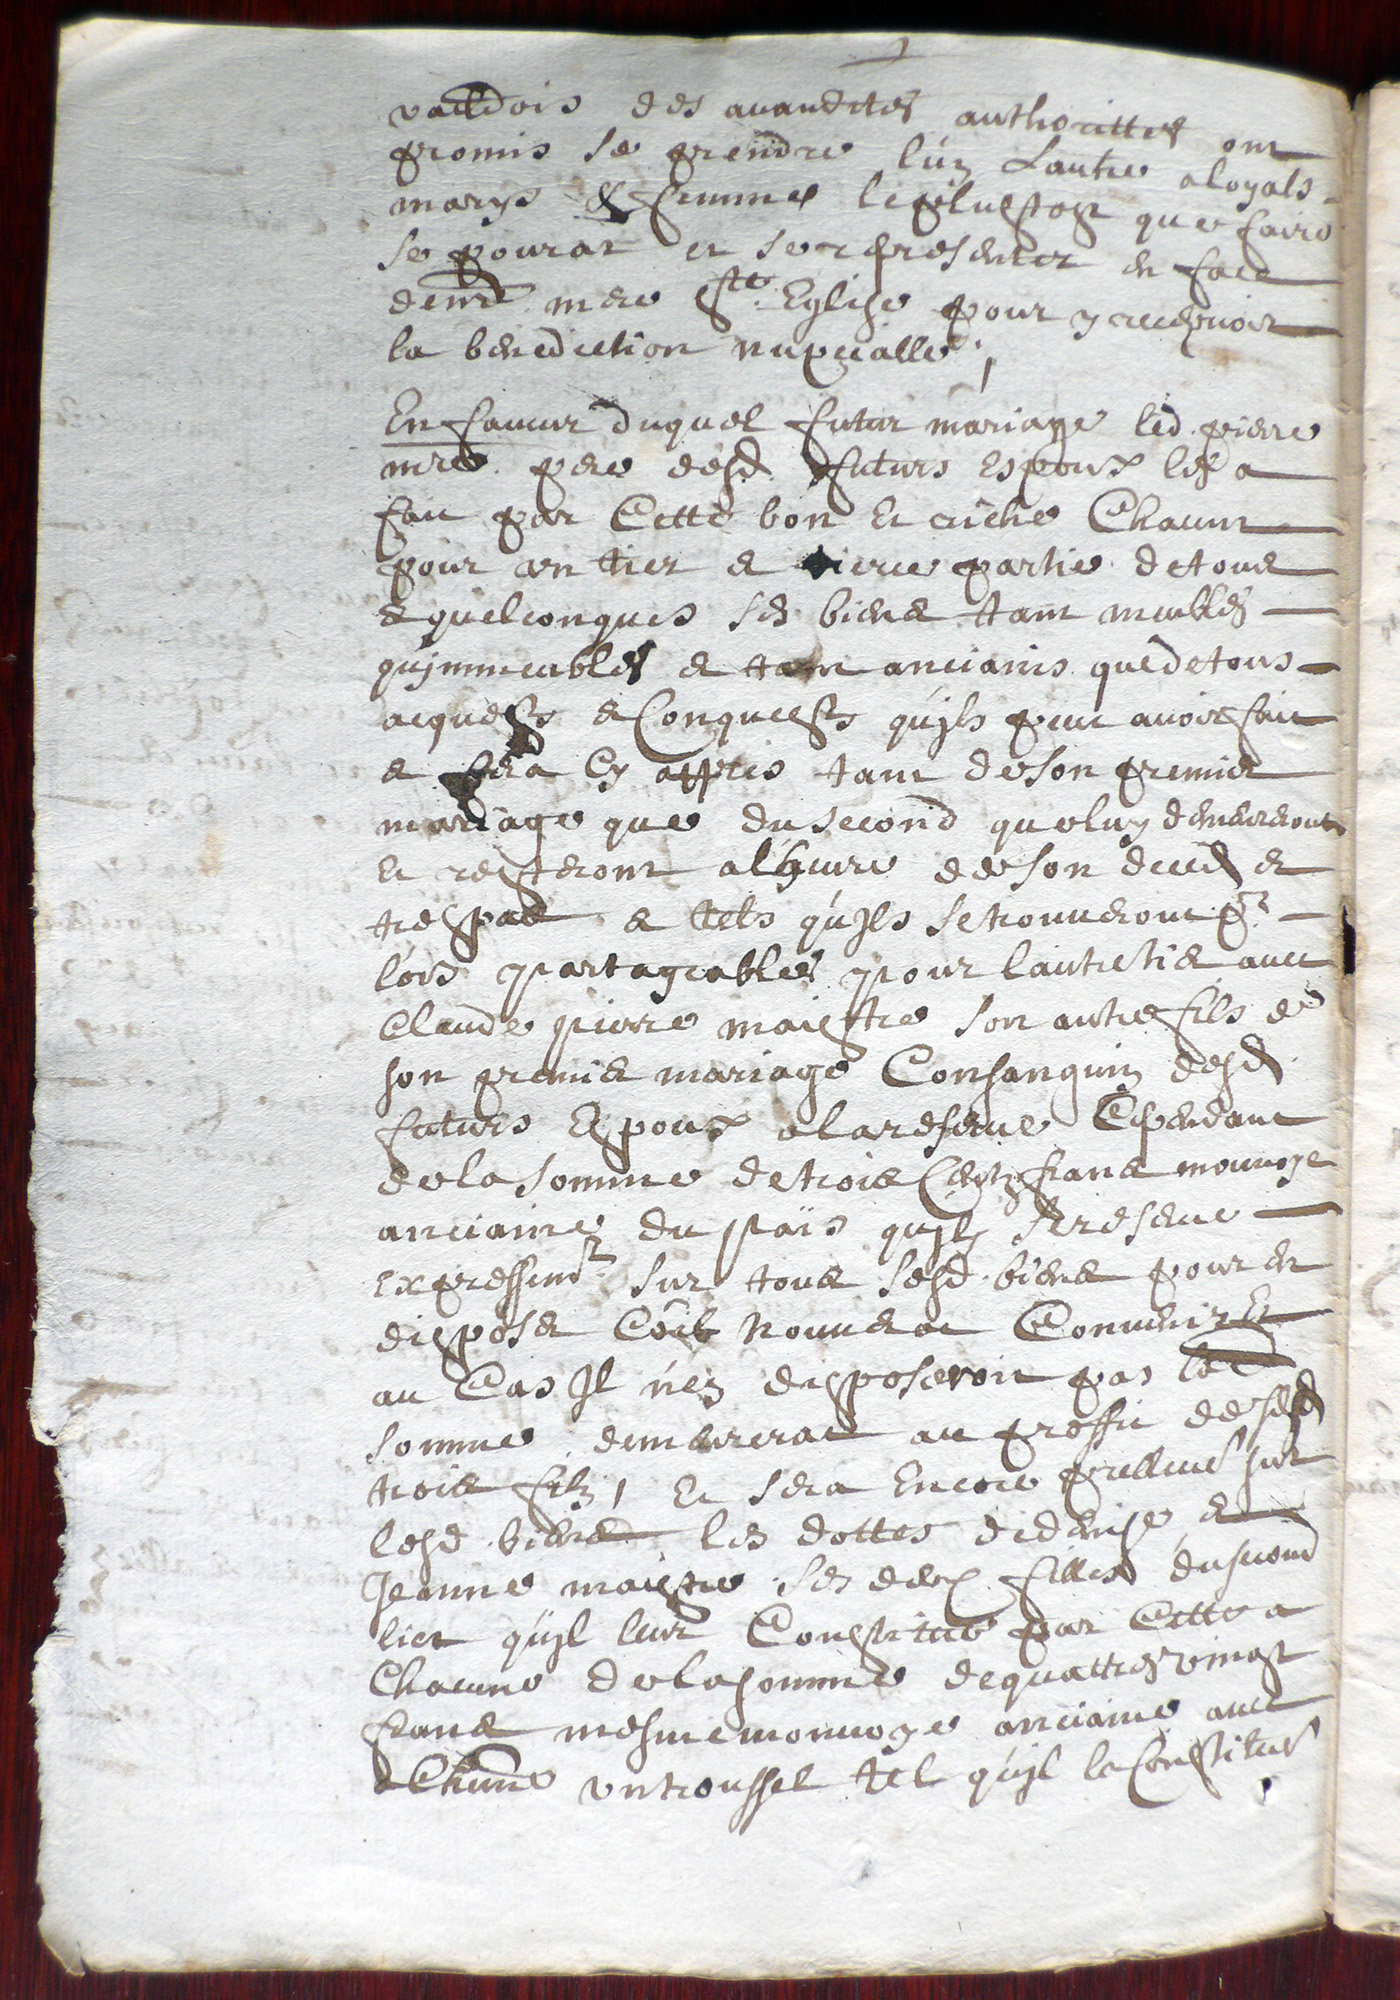 vauldois des auandittes authorittes ont
promis se prendre l'un Lautre a loyals
marys & femmes le plustost que faire
se pourat et se representer en face
de nre mere ste Eglise pour y recepuoir
la benediction nupcialle ,
En faueur duquel futur mariage led. pierre
mre pere desd futurs Espoux les a
fait par Cette bon Et riche Chacun
pour un tier et tierce partie de tous
et quelconques ses biens tant meubles
qu'jmmeubles et tant anciains que de tous
acquests et Conquests qu'jls peut auoir fait
et fera Cy appres tant de son premier
mariage que du second que luy demeureront
Et resteront a l'heure de son deces et
trespas et tels qu'Jls se trouueront pr
lors partageables pour l'autre tier auec
Claude pierre maistre son autre fils de
son premier mariage Consanguin desd
futurs Espoux a la reserue Cependant
de la somme de trois Centz frans monnoye
anciaine du païs qu'jl se reserue
expressemt sur tous sesd. biens pour en
disposer Coe bon luy Conuenir Et
au Cas Jl n'en disposeroit pas lad
somme demeurerat au proffit de sesd
trois filz , Et sera Encore prelleué sur
lesd. biens les dottes de denise et
Jeanne maistre ses deux filles du second
lict qu'jl leur Constitue par Cette a
Chacune de la somme de quattre vingt
frans mesme monnoye anciaine auec
a Chune vn troussel tel qu'jl le Constitue